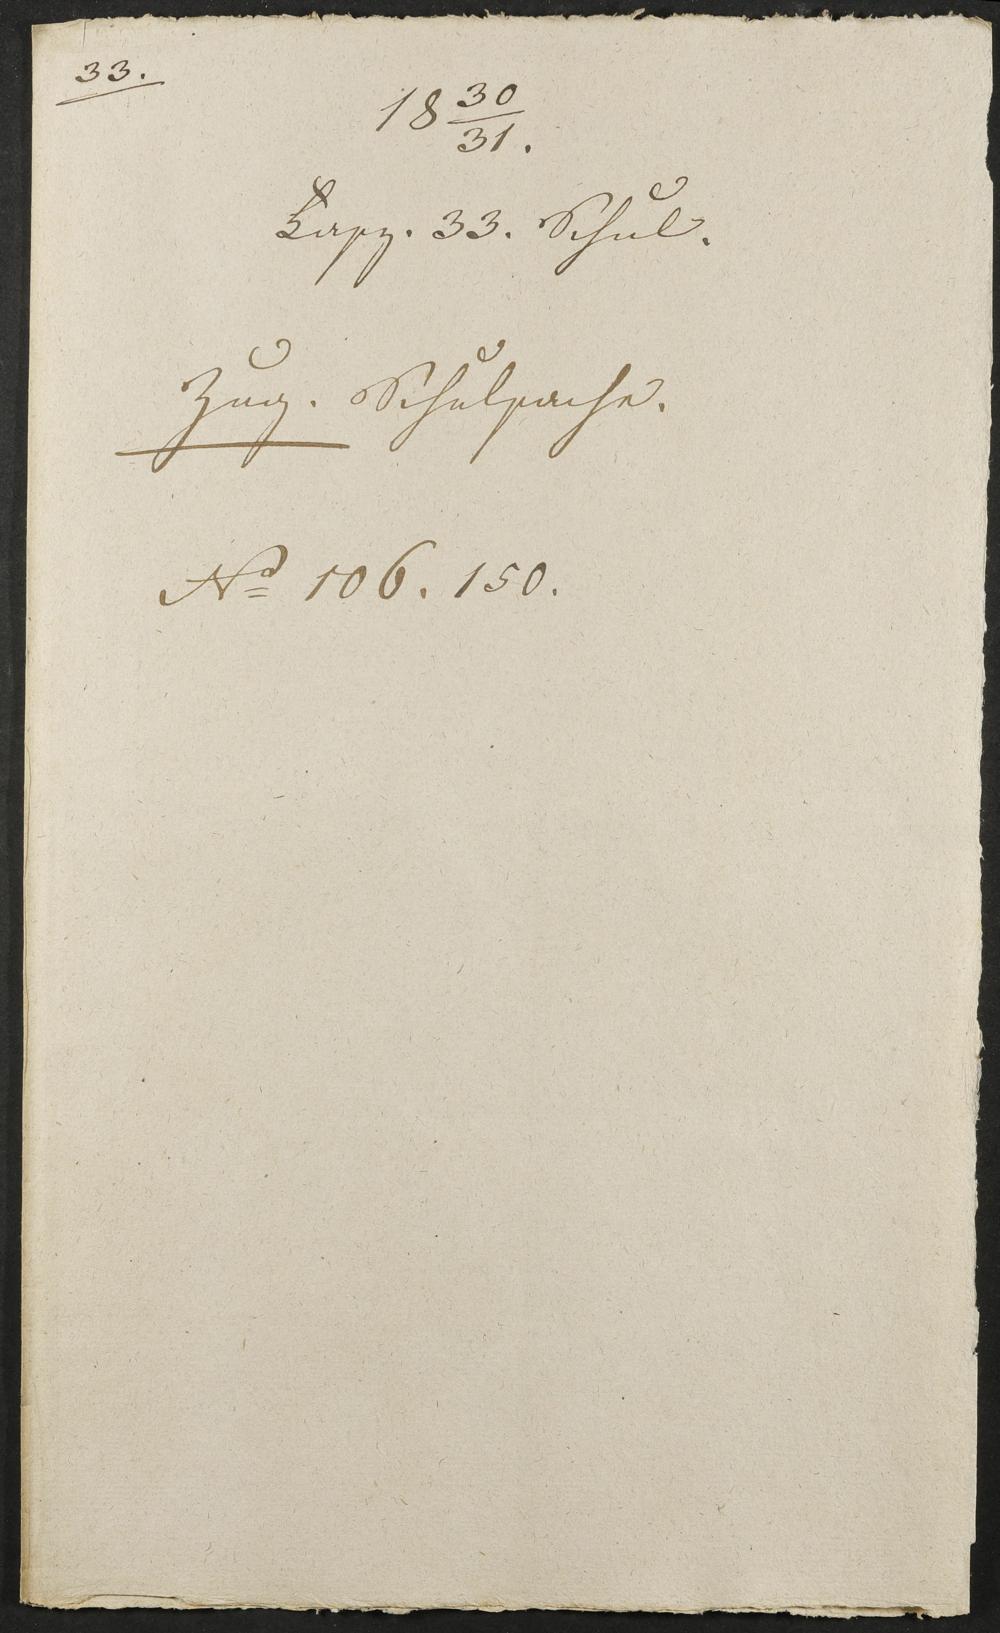 33.
18 30/31.
33. Schul.
Zug. Schulsache.
No 106. 150.